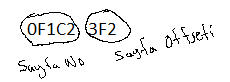 0F1C2 3F2
Sayfa No Sayfa Offseti